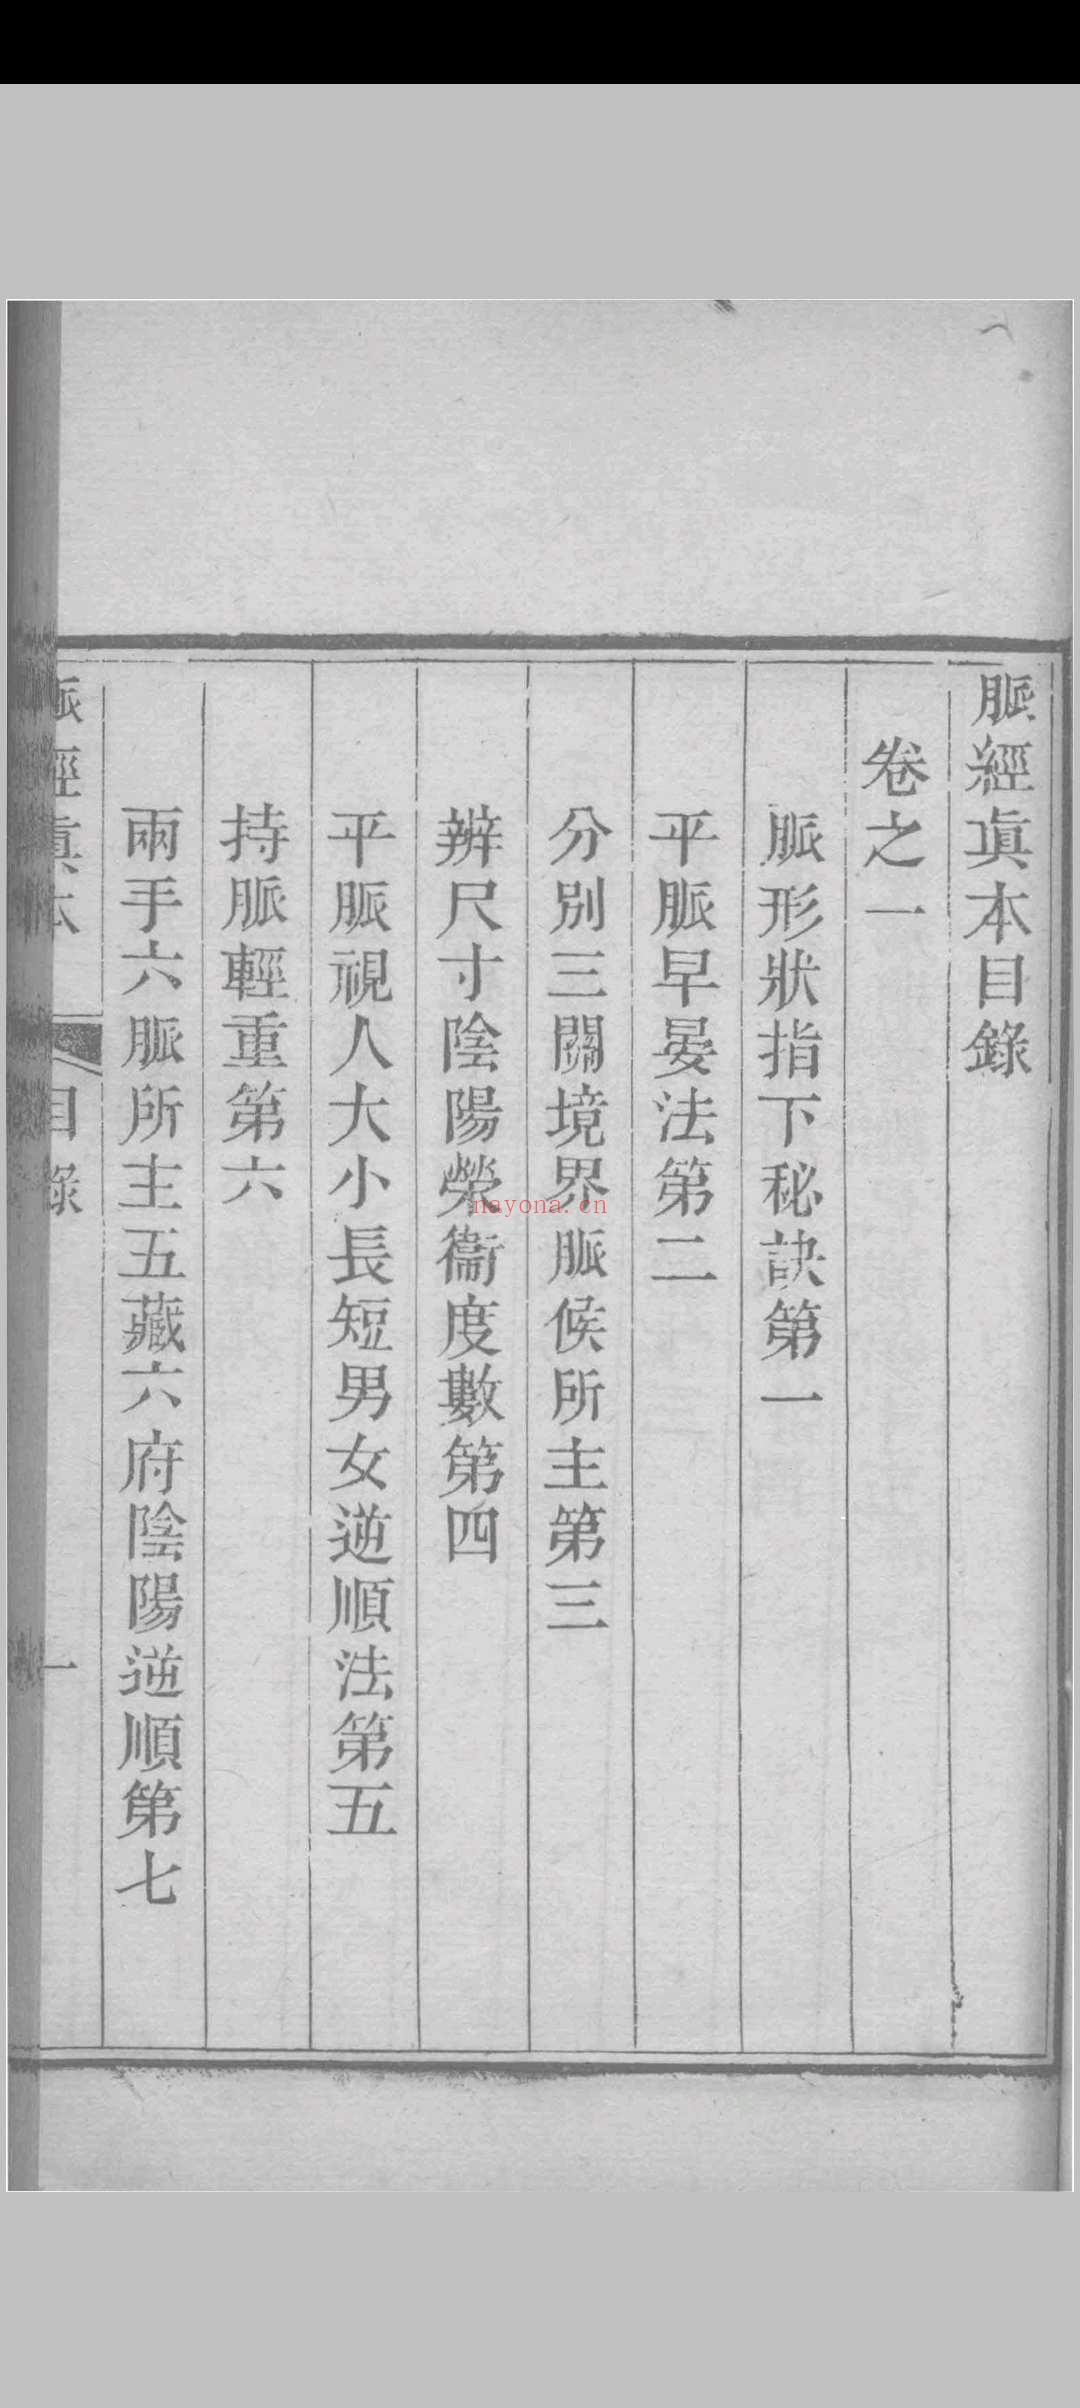 脈經眞本目錄
卷之一
脈形狀指下秘訣第一
平脈早晏法第二
分別三關境界脈候所主第三
辨尺寸陰陽榮衞度數第四
平脈視人大小長短男女逆順法第五
持脈輕重第六
兩手六脈所主五藏六府陰陽逆順第七
脈經眞本
目錄
一
nayona.cn